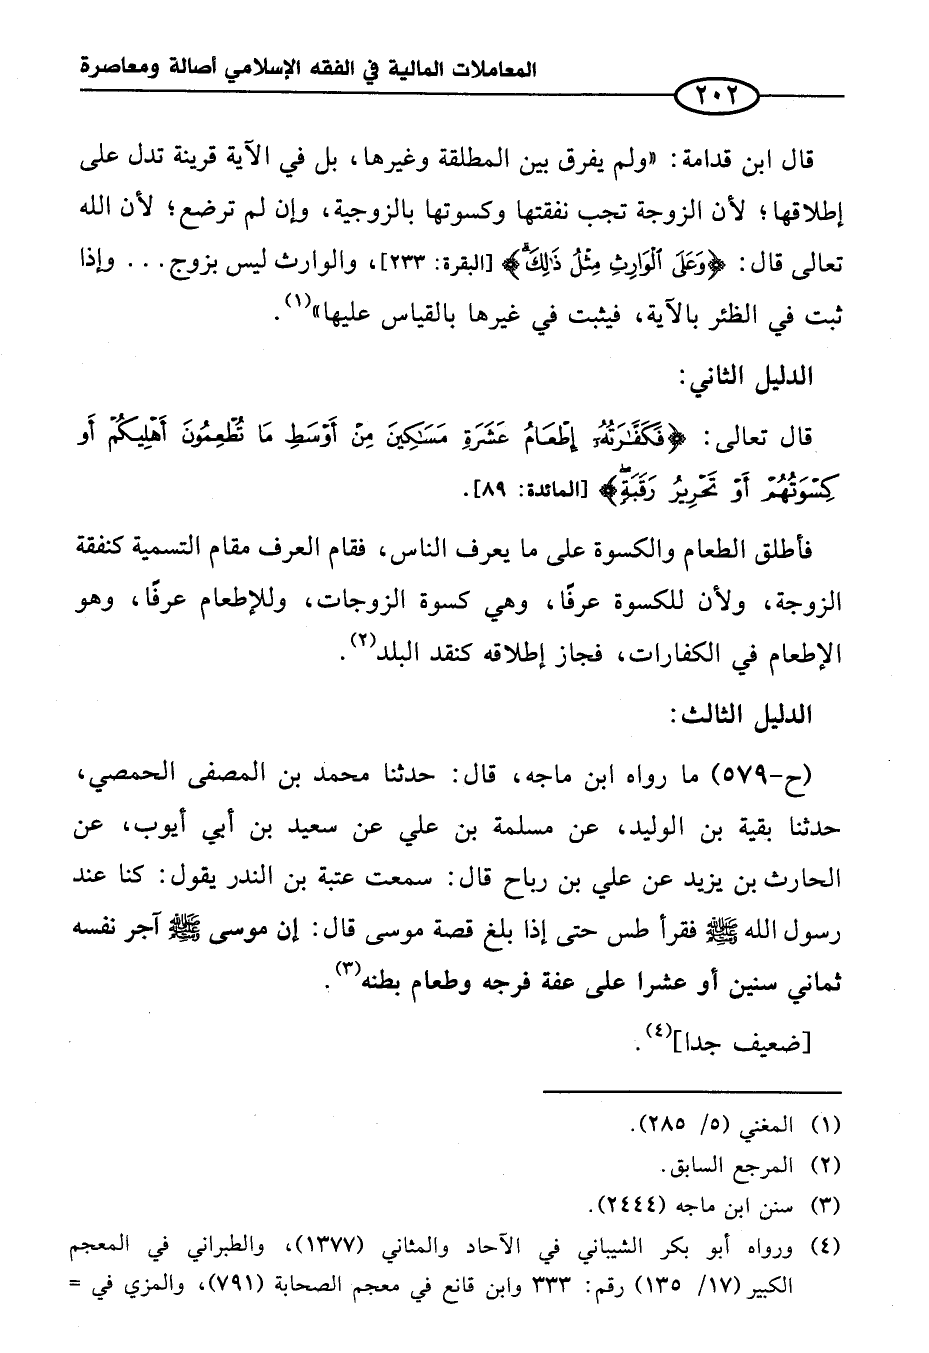 المعاملات المالية في الفقه الإسلامي أصالة ومعاصرة
٢٠٢
قال ابن قدامة: «ولم يفرق بين المطلقة وغيرها، بل في الآية قرينة تدل على
إطلاقها؛ لأن الزوجة تجب نفقتها وكسوتها بالزوجية، وإن لم ترضع؛ لأن الله
تعالى قال: ﴿وَعَلَى ٱلْوَارِثِ مِثْلُ ذَٰلِكَۗ﴾ [البقرة: ٢٣٣]، والوارث ليس بزوج... وإذا
ثبت في الظئر بالآية، فيثبت في غيرها بالقياس عليها»(١).
الدليل الثاني:
قال تعالى: ﴿فَكَفَّٰرَتُهُۥٓ إِطْعَامُ عَشَرَةِ مَسَٰكِينَ مِنْ أَوْسَطِ مَا تُطْعِمُونَ أَهْلِيكُمْ أَوْ
كِسْوَتُهُمْ أَوْ تَحْرِيرُ رَقَبَةٍۖ﴾ [المائدة: ٨٩].
فأطلق الطعام والكسوة على ما يعرف الناس، فقام العرف مقام التسمية كنفقة
الزوجة، ولأن للكسوة عرفًا، وهي كسوة الزوجات، وللإطعام عرفًا، وهو
الإطعام في الكفارات، فجاز إطلاقه كنقد البلد(٢).
الدليل الثالث:
(ح-٥٧٩) ما رواه ابن ماجه، قال: حدثنا محمد بن المصفى الحمصي،
حدثنا بقية بن الوليد، عن مسلمة بن علي عن سعيد بن أبي أيوب، عن
الحارث بن يزيد عن علي بن رباح قال: سمعت عتبة بن الندر يقول: كنا عند
رسول الله ﷺ فقرأ طس حتى إذا بلغ قصة موسى قال: إن موسى ﷺ آجر نفسه
ثماني سنين أو عشرا على عفة فرجه وطعام بطنه(٣).
[ضعيف جدا](٤).
(١) المغني (٥/ ٢٨٥).
(٢) المرجع السابق.
(٣) سنن ابن ماجه (٢٤٤٤).
(٤) ورواه أبو بكر الشيباني في الآحاد والمثاني (١٣٧٧)، والطبراني في المعجم
الكبير (١٧/ ١٣٥) رقم: ٣٣٣ وابن قانع في معجم الصحابة (٧٩١)، والمزي في =